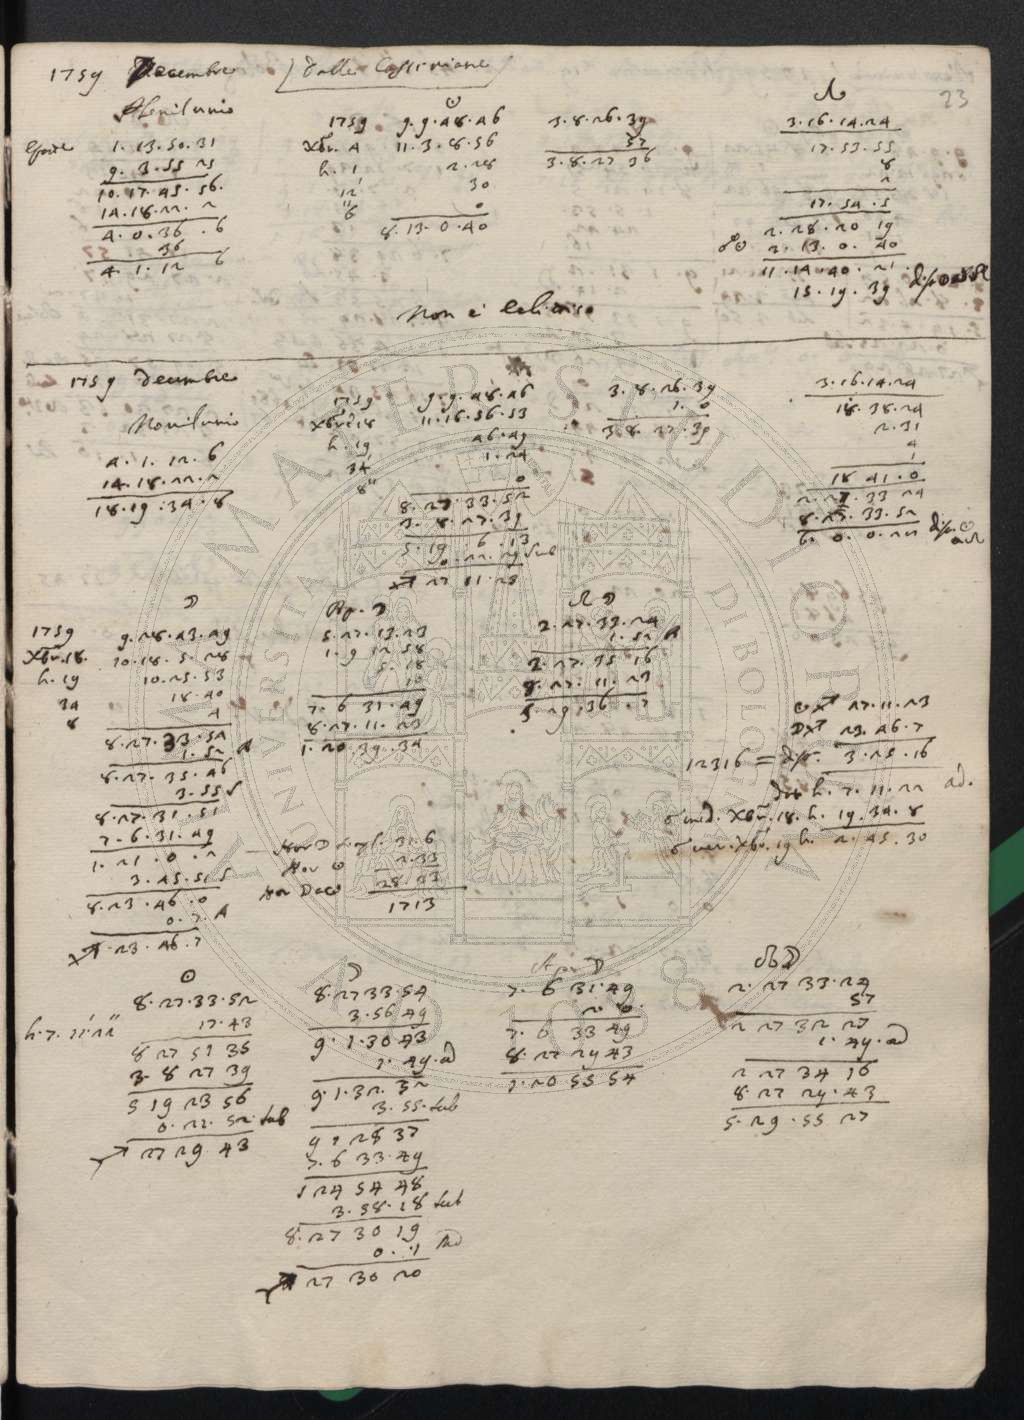 1759 Decembre Dalle Cassiniane
23
Plenilunio
Epatte 1. 13. 50. 31
9. 3. 55 25
10. 17. 45. 56.
14. 18. 22. 2
4. 0. 36. 6
36
4. 1. 12 6
☉
1759 9. 9. 48. 46
Xbr. 4 11. 3. 8. 56
h. 1 2. 28
12' 30
6" 0
8. 13. 0. 40
3. 8. 26. 39
57
3. 8. 27 36
☊
3. 16. 14. 24
17. 53. 55
8
2
17. 54. 5
2. 28. 20 19
☍☉ 2. 13. 0. 40
11. 14. 40. 21
15. 19. 39
Non è Eclisse
1759 Decembre
Novilunio
4. 1. 12. 6
14. 18. 22. 2
18. 19. 34. 8
1759 9. 9. 48. 46
Xbre 18 11. 16. 56. 53
h. 19 46. 49
34' 1. 24
8" 0
8. 27. 33. 52
3. 8. 27. 39
5. 19 6. 13
0. 22. 29 sub
27 11. 23
3. 8. 26. 39
1. 0
3. 8. 27. 39
3. 16. 14. 24
18. 38. 24
2. 31
4
1
18 41. 0
2. 27. 33 24
8. 27. 33. 52
6. 0. 0. 22
☽
1759 9. 28. 43. 49
Xbr. 18. 10. 18. 5. 28
h. 19 10. 25. 53
34 18. 40
8 4
8. 27. 33. 54
1. 52 A
8. 27. 35. 46
3. 55 S
8. 27. 31. 51
7. 6. 31. 49
1. 21. 0. 2
3. 45. 51 S
8. 23. 46. 0
0. 7 A
23. 46. 7
Ap. ☽
5. 27. 13. 23
1. 9 12 58
5. 18
10
7. 6 31. 49
8. 27. 11. 23
1. 20 39. 34
☊ ☽
2. 27. 33. 24
1. 52 A
2. 27. 35 16
8. 27. 11. 23
5. 29. 36. 7
☉ 27. 11. 23
☽ 23. 46. 7
12316 = diff. 3. 25. 16
dat h. 7. 11. 22 ad.
☌ med. Xbr. 18. h. 19. 34. 8
☌ ver. Xbr. 19 h. 2. 45. 30
Hor ☽ 31. 6
Hor ☉ 2. 33
28. 33
1713
☉
8. 27. 33. 52
h. 7. 11' 22" 17. 43
8 27 51 35
3. 8 27 39
5 19 23 56
0. 22. 52. sub
27 29 43
☽
8. 27 33. 54
3. 56 49
9. 1. 30 43
1. 49. ad
9. 1. 32. 32
3. 55. sub
9 1 28 37
7. 6 33. 49
1 24 54 48
3. 58. 18 sub
8. 27 30 19
0. 1 ad
27 30 20
Apo ☽
7. 6 31. 49
2. 0.
7. 6 33 49
8. 27 29 43
1. 20 55 54
☊ ☽
2. 27 33. 24
57
2 27 32 27
1. 49. ad
2 27 34 16
8. 27 29. 43
5. 29. 55 27
ALMA MATER STUDIORUM
UNIVERSITÀ DI BOLOGNA
A.D. 1088